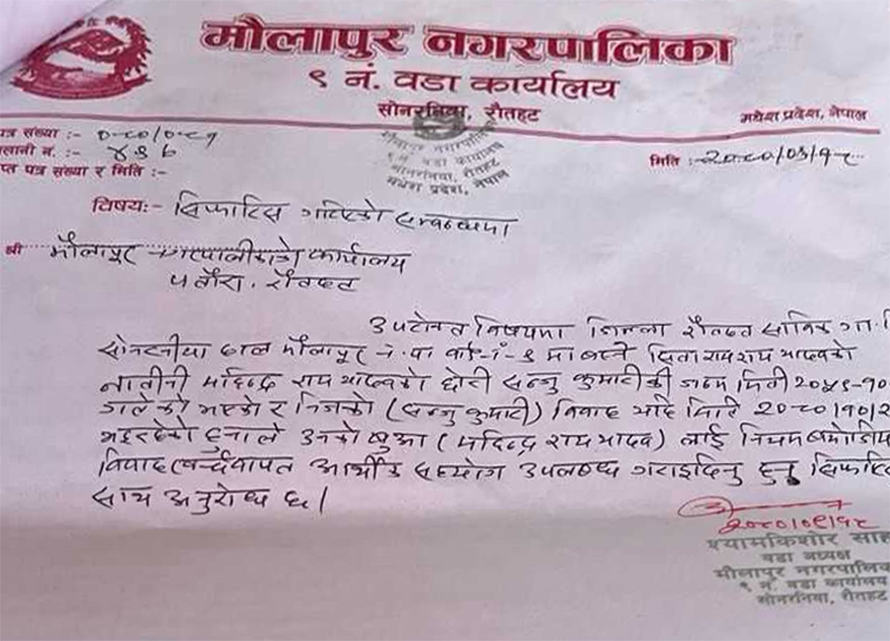 मौलापुर नगरपालिका
९ नं. वडा कार्यालय
सोनरनिया, रौतहट
मधेश प्रदेश, नेपाल
पत्र संख्या :- ०८०/०८१
चलानी नं. :- ४९६
प्राप्त पत्र संख्या र मिति :-
मिति :-२०८०/०९/१८
मौलापुर नगरपालिका
९ नं. वडा कार्यालय
सोनरनिया, रौतहट
मधेश प्रदेश, नेपाल
विषय:- सिफारिस गरिएको सम्बन्धमा
श्री मौलापुर नगरपालीकाको कार्यालय
पतौरा, रौतहट
उपरोक्त विषयमा जिल्ला रौतहट साविक गा.वि
सोनरनीया हाल मौलापुर न.पा वार्ड नं-९ मा बस्ने सिताराम राय यादवको
नातीनी महिन्द्र राय यादवको छोरी सन्जु कुमारीकी जन्म मिती २०५९-१०
गतेको भएको र निजको (सन्जु कुमारी) विवाह यहि मिति २०८०/१०/२
भइरहेको हुनाले उनको बुआ (महिन्द्र राय यादव) लाई नियम बमोजिम
विवाह खर्चवापत आर्थीक सहयोग उपलब्ध गराइदिनु हुन सिफारिस
साथ अनुरोध छ।
२०८०/०९/१८
श्यामकिशोर साह
वडा अध्यक्ष
मौलापुर नगरपालिका
९ नं. वडा कार्यालय
सोनरनिया, रौतहट